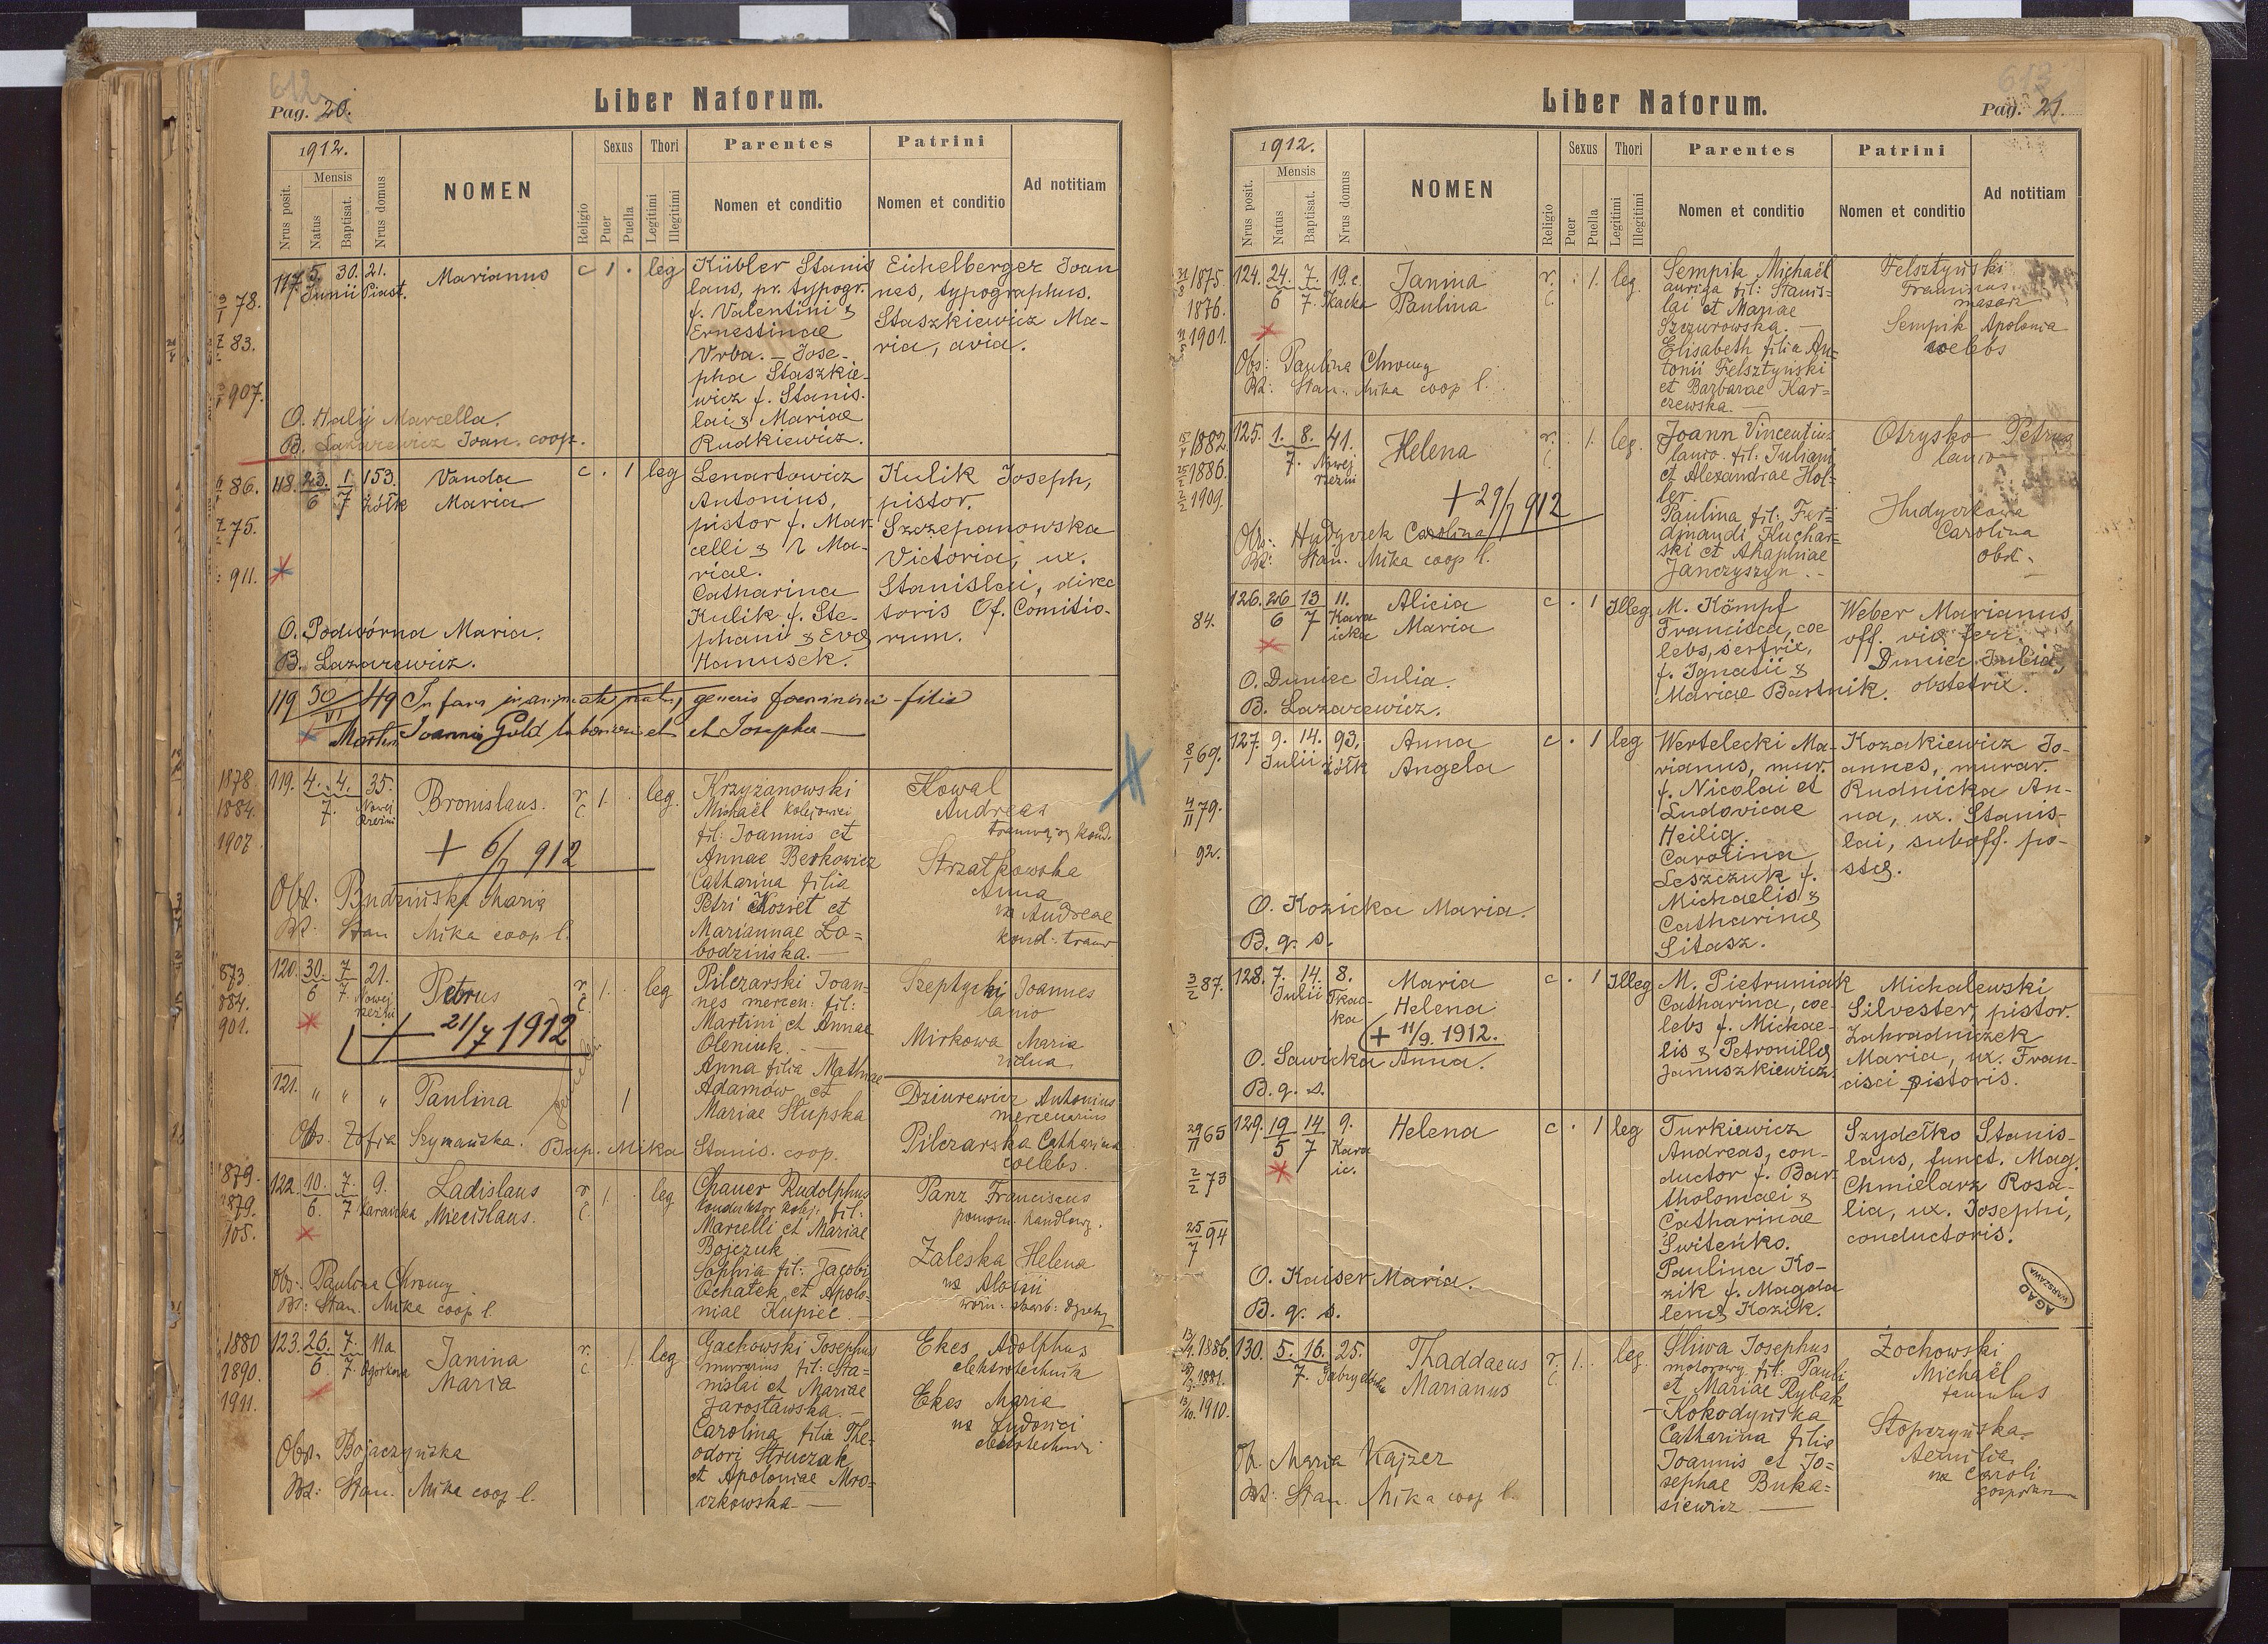 612
Pag. 20.
Liber Natorum.
1912.
Nrus posit.
Mensis
Natus
Baptisat.
Nrus domus
NOMEN
Religio
Sexus
Puer
Puella
Thori
Legitimi
Illegitimi
Parentes
Nomen et conditio
Patrini
Nomen et conditio
Ad notitiam
117. 5. 30. 21.
Junii Piast.
Marianus
c 1 . leg
78.
83.
907.
Kübler Stanis
laus, pr. typogr.
f. Valentini &
Ernestinae
Vrba. — Jose-
pha Staszkie-
wicz f. Stanis-
lai & Mariae
Rudkiewicz.
Eichelberger Joan
nes, typographus.
Staszkiewicz Ma-
ria, avia.
O. Halij Marcella.
B. Lazarewicz Joan. coop.
86.
75.
911.
118. 23. 1 153.
6 7 Żółk
Vanda
Maria
c . 1 leg
Lenartowicz
Antonius,
pistor f. Mar-
celli & Ma-
riae.
Catharina
Kulik f. Ste-
phani & Evae
Hanusek.
Kulik Joseph,
pistor.
Szczepanowska
Victoria, ux.
Stanislai, direc
toris Of. Comitio-
rum.
O. Podwórna Maria.
B. Lazarewicz.
119 30/VI 49 Infans inanimate nata, generis foeminini - filia
Martin Joannis Guld et Josepha —
1878.
1884.
1907
119. 4. 4. 35.
7. Nowej Rzeźni
Bronislaus.
r. c. 1. . leg.
+ 6/7 912
Krzyżanowski
Michaël kolejowiec
fil: Joannis et
Annae Berkowicz
Catharina filia
Petri Koziet et
Mariannae Ło=
bodzińska. —
Kowal
Andreas
tramwajowy kond.
Strzałkowska
Anna
ux Andreae
kond. tramw
Obst. Budzińska Maria
Bt. Stan Mika coop l.
873.
884.
901.
120. 30. 7. 21.
6 7 Nowej rzeźni
Petrus
r. c. 1. . leg
+ 21/7 1912
Pilczarski Joan-
nes mercen: fil:
Martini et Annae
Oleniuk. —
Anna filia Mathiae
Adamów et
Mariae Słupska
Szeptycki Joannes
lanio
Mirkowa Maria
vidua
121. " " " Paulina
gemelli
1
Dziurewicz Antonius
mercenarius
Pilczarska Catharina
coelebs.
Obs. Zofia Szymańska. Bap. Mika Stanis. coop.
1879.
1879.
905.
122. 10. 7. 9.
6. 7 Karaicka
Ladislaus
Miecislaus.
r. c. 1. leg
Chauer Rudolphus
konduktor kolej: fil:
Marcelli et Mariae
Bojczuk —
Sophia fil: Jacobi
Ochatek et Apolo-
niae Kupiec. —
Panz Franciscus
pomocn. handlowy.
Zaleska Helena
ux Aloisii
Obs: Paulina Chromy
Bt: Stan. Mika coop l.
1880
1890.
1911.
123. 26. 7. 11a
6 7 Ogórkowa
Janina
Maria
r. c. 1. leg
Gackowski Josephus
murarius fil: Sta-
nislai et Mariae
Jarosławska. —
Carolina filia The-
odori Struczak
et Apoloniae Mro-
czkowska —
Ekes Adolphus
elektrotechnik
Ekes Maria
ux Ludovici
elektrotechnici
Obs. Bojaczyńska
Bt: Stan. Mika coop l.
613
Pag. 21.
Liber Natorum.
1912.
Nrus posit.
Mensis
Natus
Baptisat.
Nrus domus
NOMEN
Religio
Sexus
Puer
Puella
Thori
Legitimi
Illegitimi
Parentes
Nomen et conditio
Patrini
Nomen et conditio
Ad notitiam
1875.
1876.
1901.
124. 24. 7. 19.c.
6 7. Tkacka
Janina
Paulina
r. c. . 1. leg.
Sempik Michaël
auriga fil: Stanis-
lai et Mariae
Szczurowska. —
Elisabeth filia An-
tonii Felsztyński
et Barbarae Kar-
czewska. —
Felsztyński
Franciscus
masarz
Sempik Apolonia
coelebs
Obs: Paulina Chromy
Bt: Stan. Mika coop l.
1882.
1886.
1909.
125. 1. 8. 41.
7. Nowej rzeźni
Helena
r. c. 1. leg.
+ 29/7 912
Joann Vincentius
lanio fil: Juliani
et Alexandrae Hol-
ler
Paulina fil: Fer-
dinandi Kuchar-
ski et Ahaphiae
Janczyszyn. —
Otrysko Petrus
lanio
Hudyczkowa
Carolina
obst.
Obs. Hudyczek Carolina
Bt: Stan. Mika coop l.
84.
126. 26 13 11.
6 7 Kara icka
Alicia
Maria
c . 1 Illeg
M. Kömpf
Francisca, coe
lebs, sertrix,
f. Ignatii &
Mariae Bartnik.
Weber Marianus,
off. viae ferr.
Duniec Julia,
obstetrix.
O. Duniec Julia.
B. Lazarewicz.
8/1 69.
4/11 79.
92.
127. 9. 14. 93.
Julii Żółk
Anna
Angela
c . 1 leg
Wertelecki Ma-
rianus, mur.
f. Nicolai et
Ludovicae
Heilig.
Carolina
Leszczuk f.
Michaelis &
Catharinae
Sitasz.
Kozakiewicz Jo-
annes, murar.
Rudnicka An-
na, ux. Stanis-
lai, suboff. po-
stae.
O. Kozicka Maria.
B. q. s.
3/2 87.
128. 7. 14. 8.
Julii Tkac-
ka
Maria
Helena
+ 11/9. 1912.
c . 1 Illeg
M. Pietruniak
Catharina, coe-
lebs f. Michae-
lis & Petronillae
Januszkiewicz.
Michalewski
Silvester, pistor.
Zahradniczek
Maria, ux. Fran-
cisci pistoris.
O. Sawicka Anna.
B. q. s.
29/11 65
2/2 73
25/7 94
129. 19 14 9.
5 7 Kara
ic.
Helena
c . 1 leg
Turkiewicz
Andreas, con-
ductor f. Bar-
tholomaei &
Catharinae
Świteńko.
Paulina Ko-
zik f. Magda
lenae Kozik.
Szydełko Stanis-
laus, funct. Mag.
Chmielarz Rosa-
lia, ux. Josephi,
conductoris.
O. Kaiser Maria.
B. q. s.
AGAD
WARSZAWA
1886.
1881.
1910.
130. 5. 16. 25.
7.
Thaddaeus
Marianus
r. c. 1. . leg.
Śliwa Josephus
motorowy fil. Pauli
et Mariae Rybak
- Kokodyńska
Catharina filia
Joannis et Jo-
sephae Buka-
siewicz —
Żochowski
Michaël
famulus
Stopczyńska
Aemilia
ux Caroli
Ob. Maria Kajzer
Bt: Stan. Mika coop l.